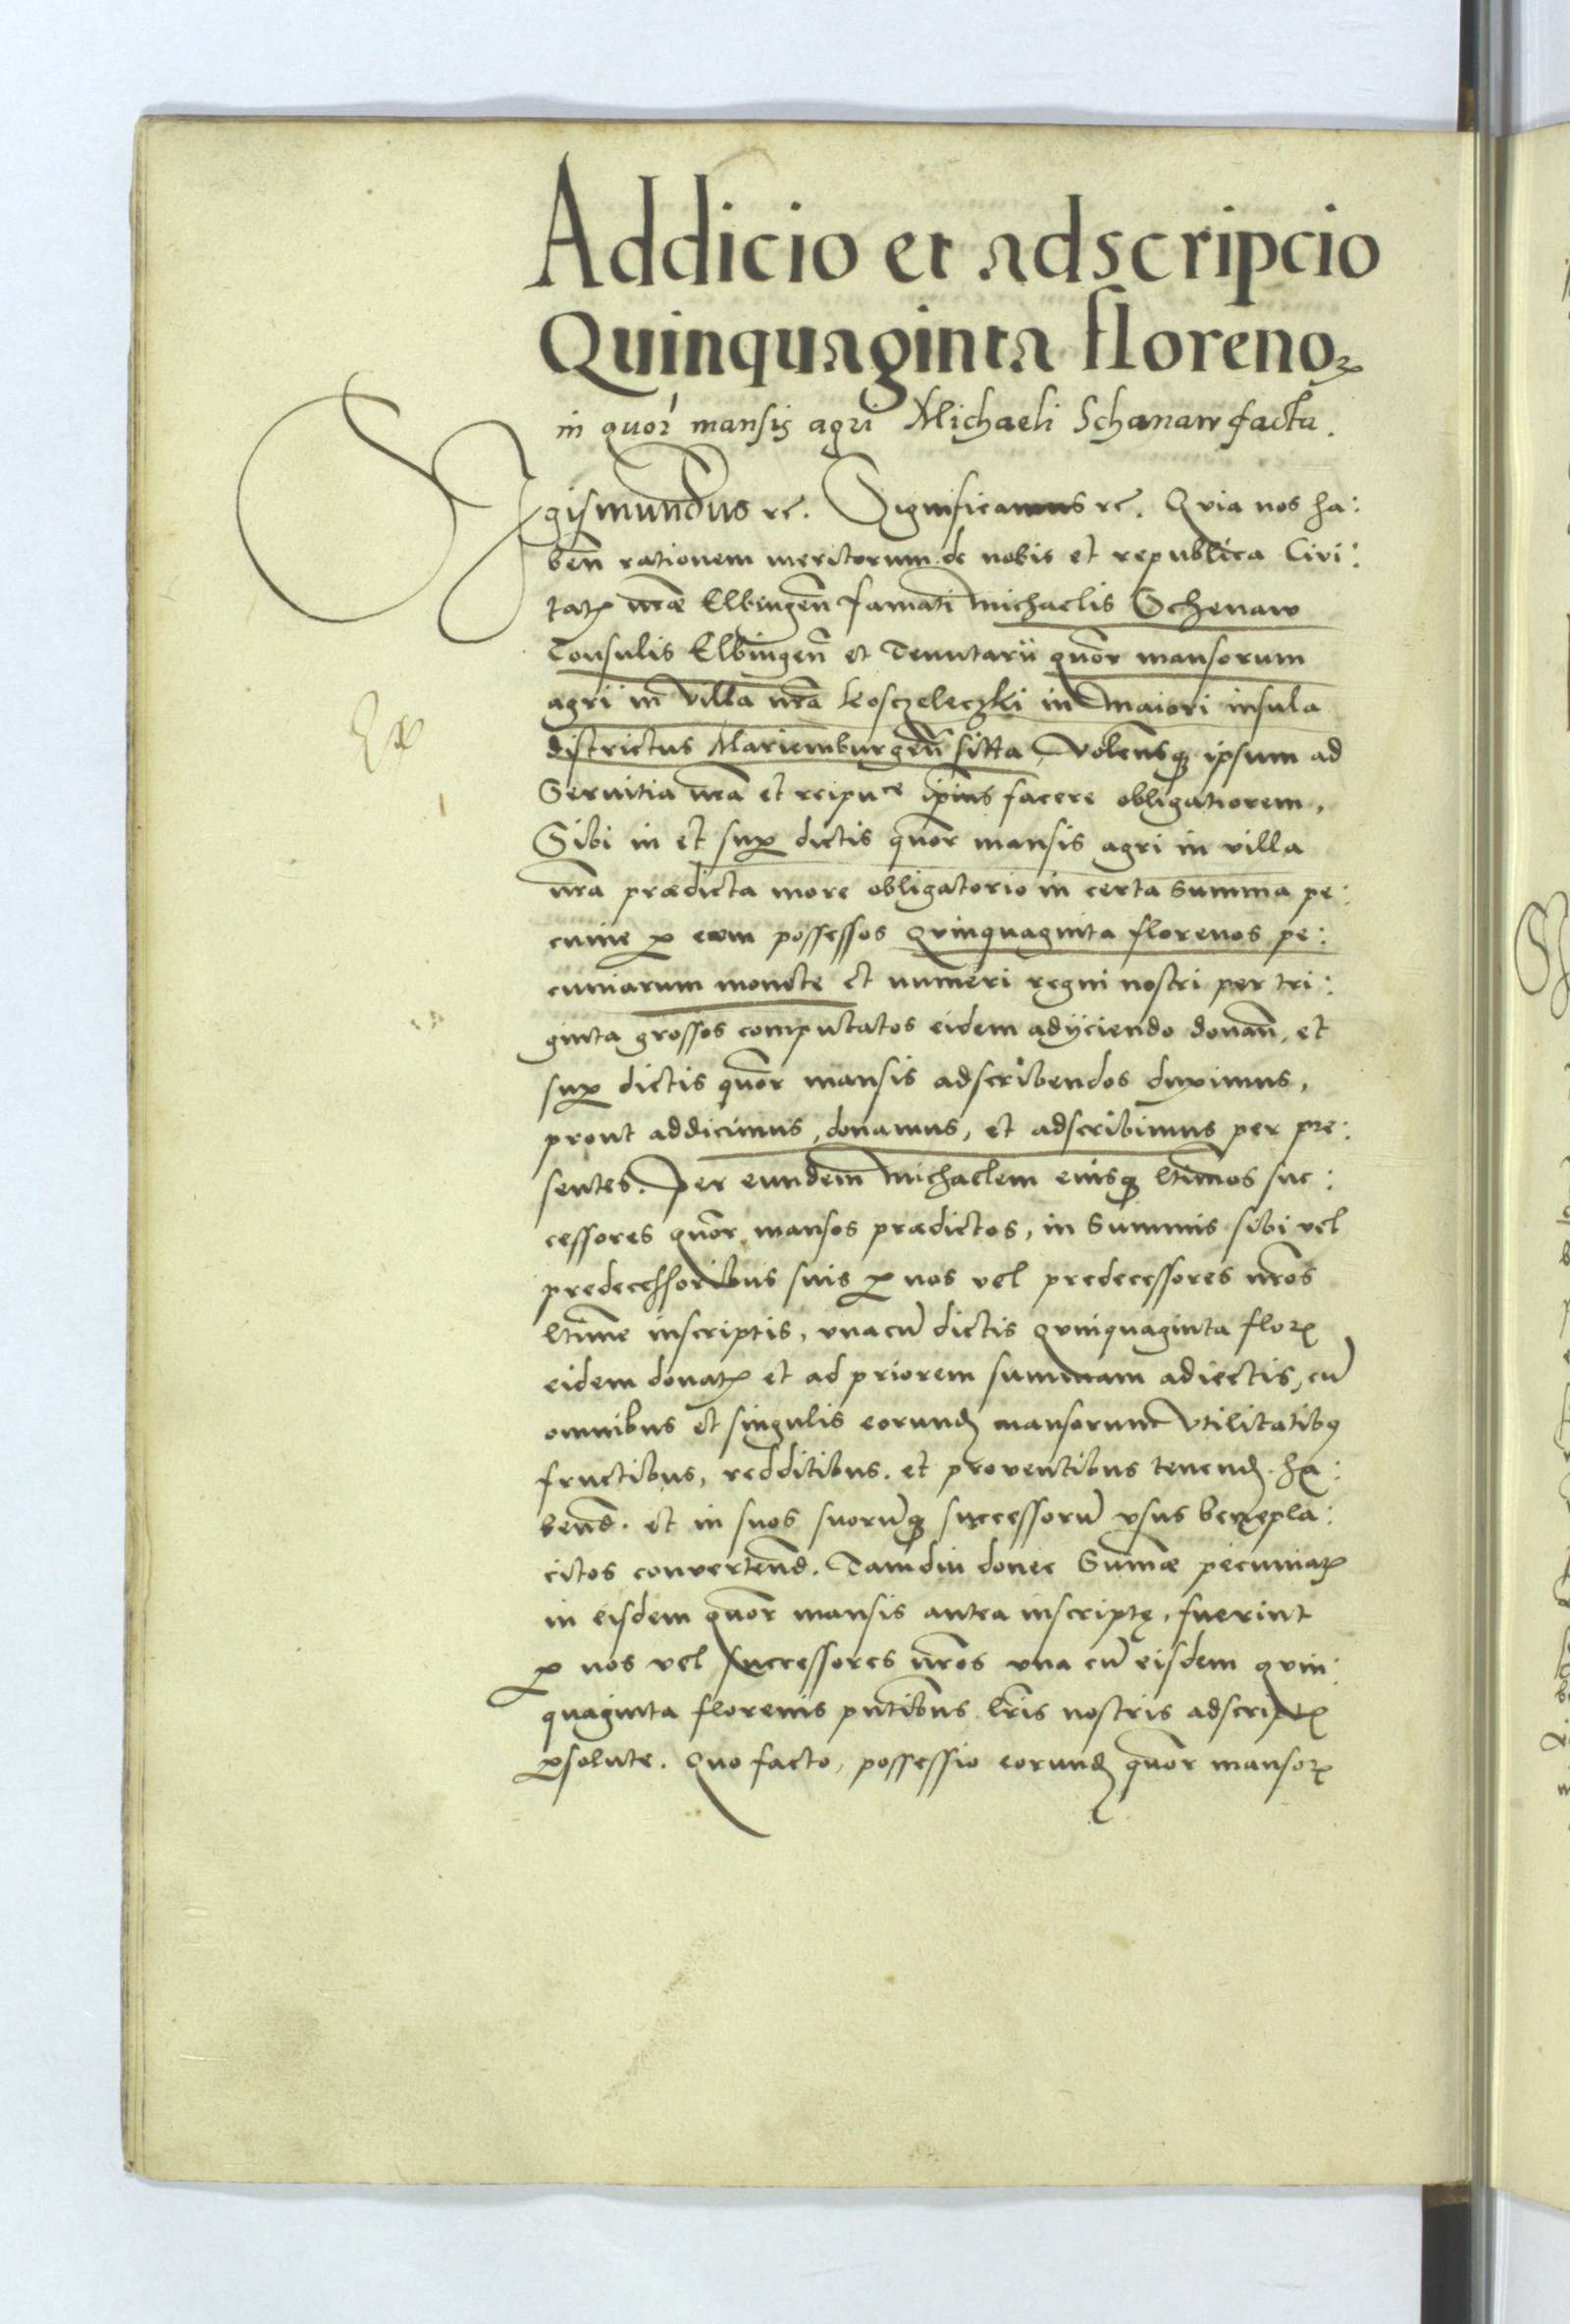 Addicio et adscripcio
Quinquaginta florenoꝝ
in quor mansis agri Michaeli Schanaw facta.
Sigismundus ꝛc. Significamus ꝛc. Quia nos ha:
ben̄ rationem meritorum de nobis et republica Civi:
tatꝭ nr̄æ Elbingen̄ famati Michaelis Schenaw
Consulis Elbingen̄ et Tenutarii quōr mansorum
agri in villa nr̄a Kosczeleczki in Maiori insula
districtus Mariemburgen̄ sitta, Volensqꝫ ipsum ad
Servitia nr̄a et reipuce ip̄ius facere obligatiorem,
Sibi in et suꝑ dictis quōr mansis agri in villa
nr̄a prædicta more obligatorio in certa summa pe:
cunie ꝑ eum possessos quinquaginta florenos pe:
cuniarum monete et numeri regni nostri per tri:
ginta grossos computatos eidem adiiciendo donan̄, et
suꝑ dictis quōr mansis adscribendos duximus,
prout addicimus, donamus, et adscribimus per pre:
sentes. Per eundem Michaelem eiusqꝫ ltīmos suc:
cessores quōr mansos prædictos, in Summis sibi vel
predecessoribus suis ꝑ nos vel predecessores nr̄os
ltīme inscriptis, unacū dictis quinquaginta florꝭ
eidem donatꝭ et ad priorem summam adiectis, cū
omnibus et singulis eorundꝫ mansorum Utilitatibꝰ
fructibus, redditibus. et proventibus tenendꝫ. ha:
bend̄. et in suos suorūqꝫ successorū usus benepla:
citos convertend̄. Tamdiu donec Summæ pecuniaꝝ
in eisdem quōr mansis antea inscriptę, fuerint
ꝑ nos vel successores nr̄os una cū eisdem quin:
quaginta florenis pn̄tibus lr̄is nostris adscriptꝭ
ꝑsolute. Quo facto, possessio eorundꝫ quōr mansoꝝ